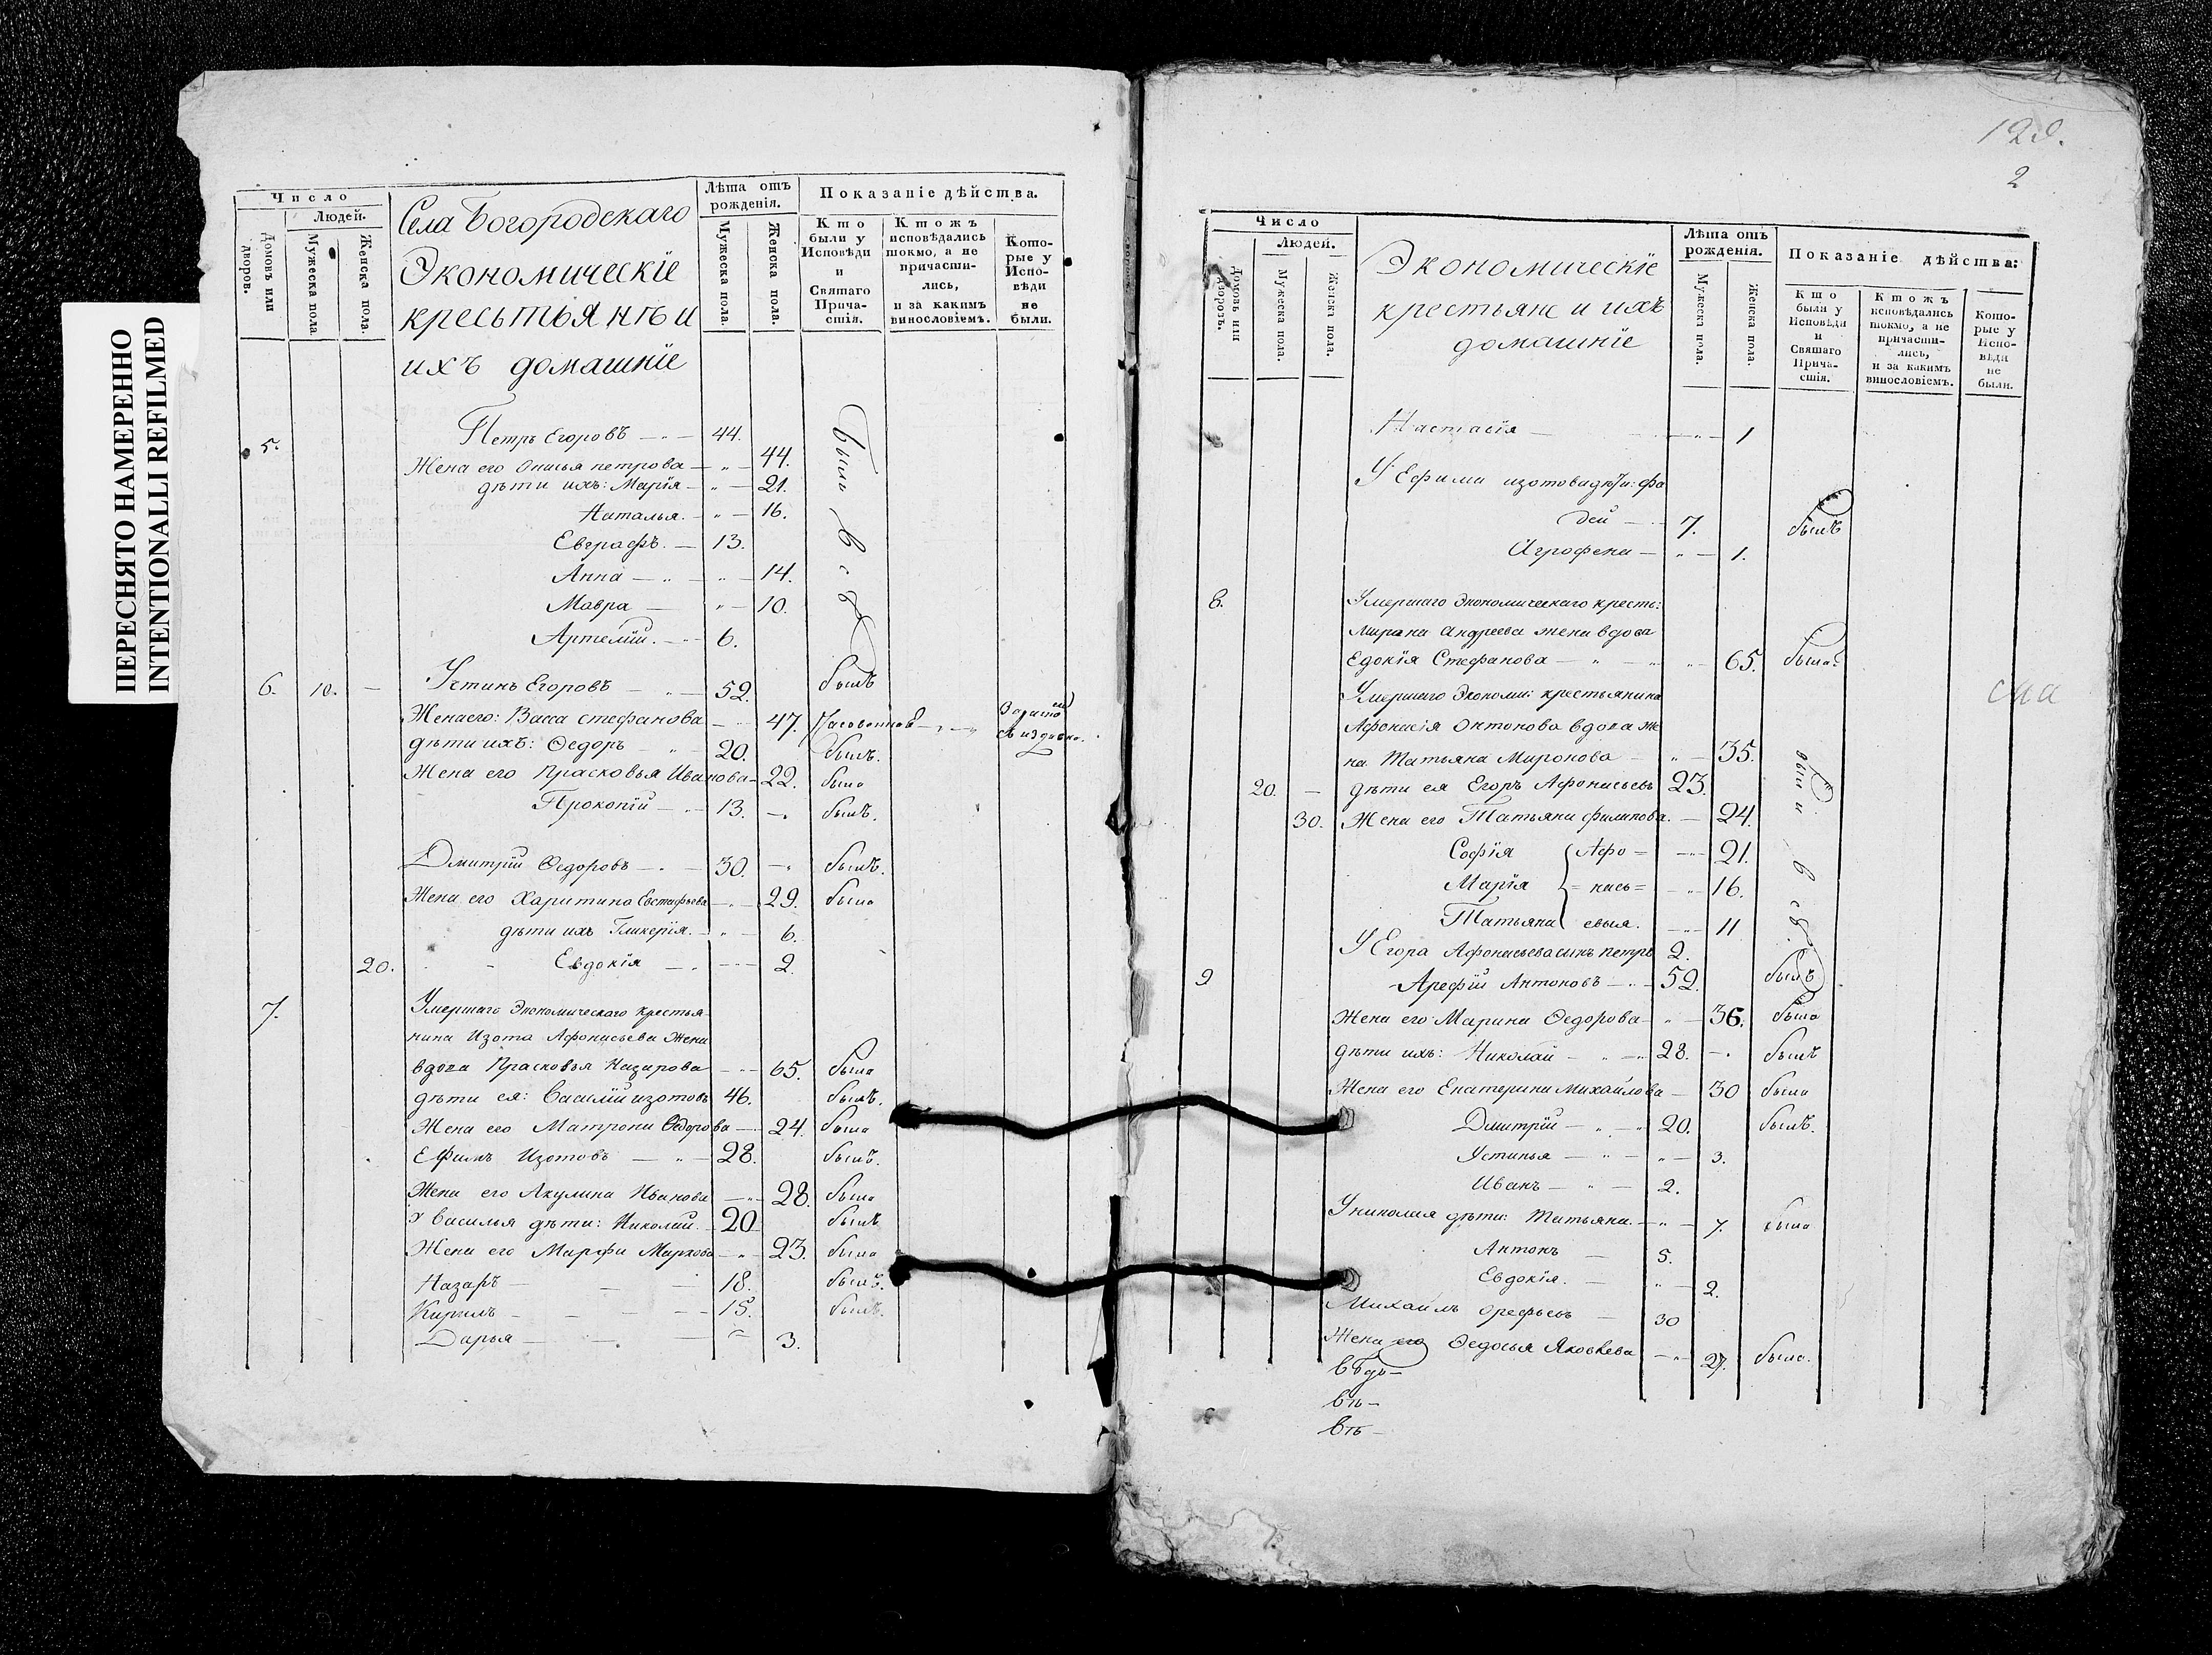 ПЕРЕСНЯТО НАМЕРЕННО
INTENTIONALLI REFILMED
Число
Людей.
Домовъ или дворовъ.
Мужеска пола.
Женска пола.
Села Богородскаго
Экономическіе
кресьтьянѣ и
ихъ домашніе
Лѣта отъ рожденія.
Мужеска пола.
Женска пола.
Показаніе дѣйства.
Кто были у Исповѣди и Святаго Прича-стія.
Ктожъ исповѣдались токмо, а не причасти-лись, и за какимъ винословіемъ.
Кото-рые у Испо-вѣди не были.
5. Петръ Егоровъ — 44.
Жена его Онисья петрова — 44.
дѣти ихъ: Марія — 21.
Наталья. — 16.
Евграфъ. — 13.
Анна — 14.
Мавра — 10.
Артемій. — 6.
были всѣ
6. 10. — Устинъ Егоровъ — 52. былъ
Жена его: Васса стефанова — 47.
дѣти ихъ: Ѳедоръ — 20. былъ.
Жена его Прасковья Иванова — 22. была
Прокопій — 13. — былъ.
Дмитрій Ѳедоровъ — 30. — былъ.
Жена его Харитина Евстафьева — 29. была
дѣти ихъ Гликерія. — 6.
20. Евдокія — 2.
7. Умершаго Экономическаго крестья-
нина Изота Афонасьева Жена
вдова Прасковья Назарова — 65. была
дѣти ея: Василій изотовъ 46. былъ.
Жена его Матрона Ѳедорова — 24. была
Ефимъ Изотовъ — 28. былъ.
Жена его Акулина Иванова — 28. была
У василья дѣти: Николай. 20 былъ
Жена его Марфа Маркова — 23. была
Назаръ — 18. былъ.
Кирилъ — 15. былъ.
Дарья — 3.
129.
2
Число
Людей.
Домовъ или дворовъ.
Мужеска пола.
Женска пола.
Экономическіе
крестьяне и ихъ
домашніе
Лѣта отъ рожденія.
Мужеска пола.
Женска пола.
Показаніе дѣйства:
Кто были у Исповѣди и Святаго Прича-стія.
Ктожъ исповѣдались токмо, а не причасти-лись, и за какимъ винословіемъ.
Кото-рые у Испо-вѣди не были.
Настасія — 1
У Ефима изотова дѣти: фа
дей — 7. былъ
Агрофена — 1.
8. Умершаго Экономическаго кресть:
Мирона Андреева жена вдова
Едокія Стефанова — 65. была
Умершаго Экономи: крестьянина
Афонасія Онтонова вдова же
на Татьяна Миронова — 35.
20. — дѣти ея Егоръ Афонасьевъ 23.
30. Жена его Татьяна филипова. — 24.
Софія { Афо= — 21.
Марія = нась= — 16.
Татьяна евыя. — 11
были всѣ
У Егора Афонасьева сынъ петръ 2.
9 Арефій Антоновъ — 52. былъ
Жена его Марина Ѳедорова — 36. была
дѣти ихъ: Николай — 28. — былъ
Жена его Екатерина Михайлова — 30 была
Дмитрій — 20. былъ.
Устинья — 3.
Иванъ — 2.
У николая дѣти: Татьяна. — 7. была
Антонъ — 5.
Евдокія. — 2.
Михаилъ Орефьевъ — 30
Жена его Ѳедосья Яковлева — 27. была.